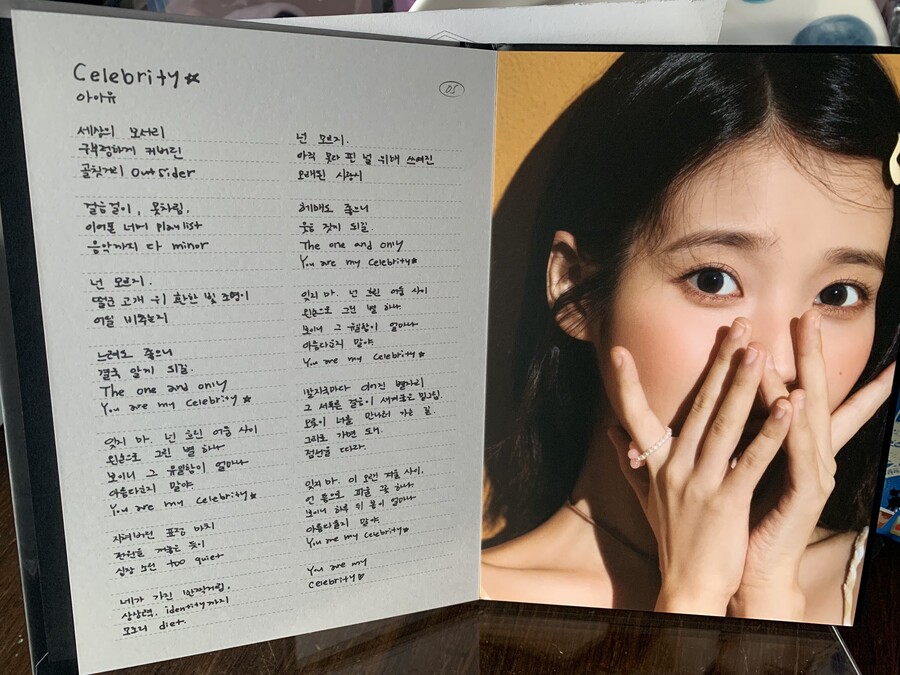 Celebrity☆
아이유
05
세상의 모서리
구부정하게 커버린
골칫거리 outsider
걸음걸이, 옷차림,
이어폰 너머 playlist
음악까지 다 minor
넌 모르지.
떨군 고개 위 환한 빛 조명이
어딜 비추는지
느려도 좋으니
결국 알게 되길.
The one and only
You are my celebrity☆
잊지 마. 넌 흐린 어둠 사이
왼손으로 그린 별 하나
보이니 그 유일함이 얼마나
아름다운지 말야
You are my celebrity☆
지쳐버린 표정 마치
전원을 꺼놓은 듯이
심장 소린 too quiet
네가 가진 반짝거림,
상상력, identity까지
모조리 diet.
넌 모르지.
아직 못다 핀 널 위해 쓰여진
오래된 사랑시
헤매도 좋으니
웃음 짓게 되길
The one and only
You are my celebrity☆
잊지 마. 넌 흐린 어둠 사이
왼손으로 그린 별 하나
보이니 그 유일함이 얼마나
아름다운지 말야
You are my celebrity☆
발자국마다 이어진 별자리
그 서투른 걸음이 새겨놓은 밑그림.
오롯이 너를 만나러 가는 길.
그리로 가면 돼.
점선을 따라.
잊지 마. 이 오랜 겨울 사이,
언 틈으로 피울 꽃 하나
보이니 하루 뒤 봄이 얼마나
아름다운지 말야
You are my celebrity☆
You are my
celebrity♡